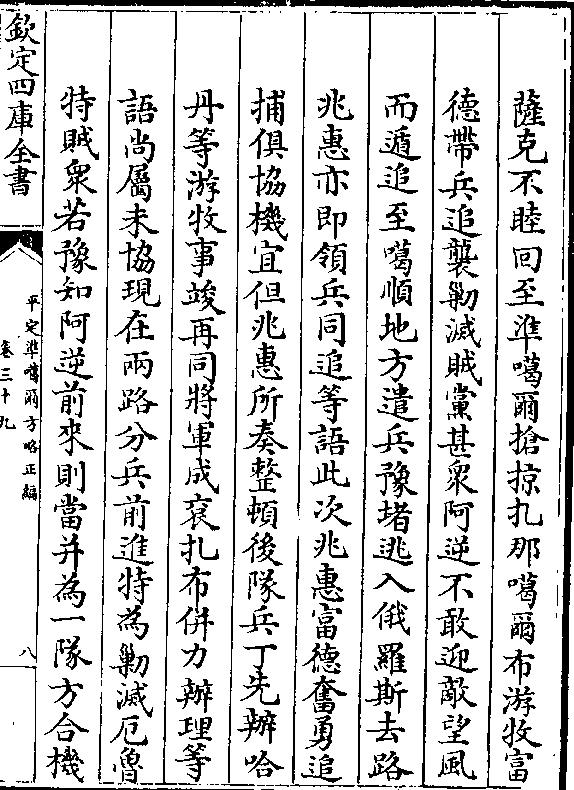 薩克不睦回至準噶爾搶掠扎那噶爾布游牧富
德帶兵追襲勦滅賊黨甚衆阿逆不敢迎敵望風
而遁追至噶順地方遣兵豫堵逃入俄羅斯去路
兆惠亦即領兵同追等語此次兆惠富德奮勇追
捕俱協機宜但兆惠所奏整頓後隊兵丁先辦哈
丹等游牧事竣再同將軍成衮扎布併力辦理等
語尚屬未協現在兩路分兵前進特為勦滅厄魯
特賊衆若豫知阿逆前來則當并為一隊方合機
欽定四庫全書
平定準噶爾方略正編
卷三十九
八